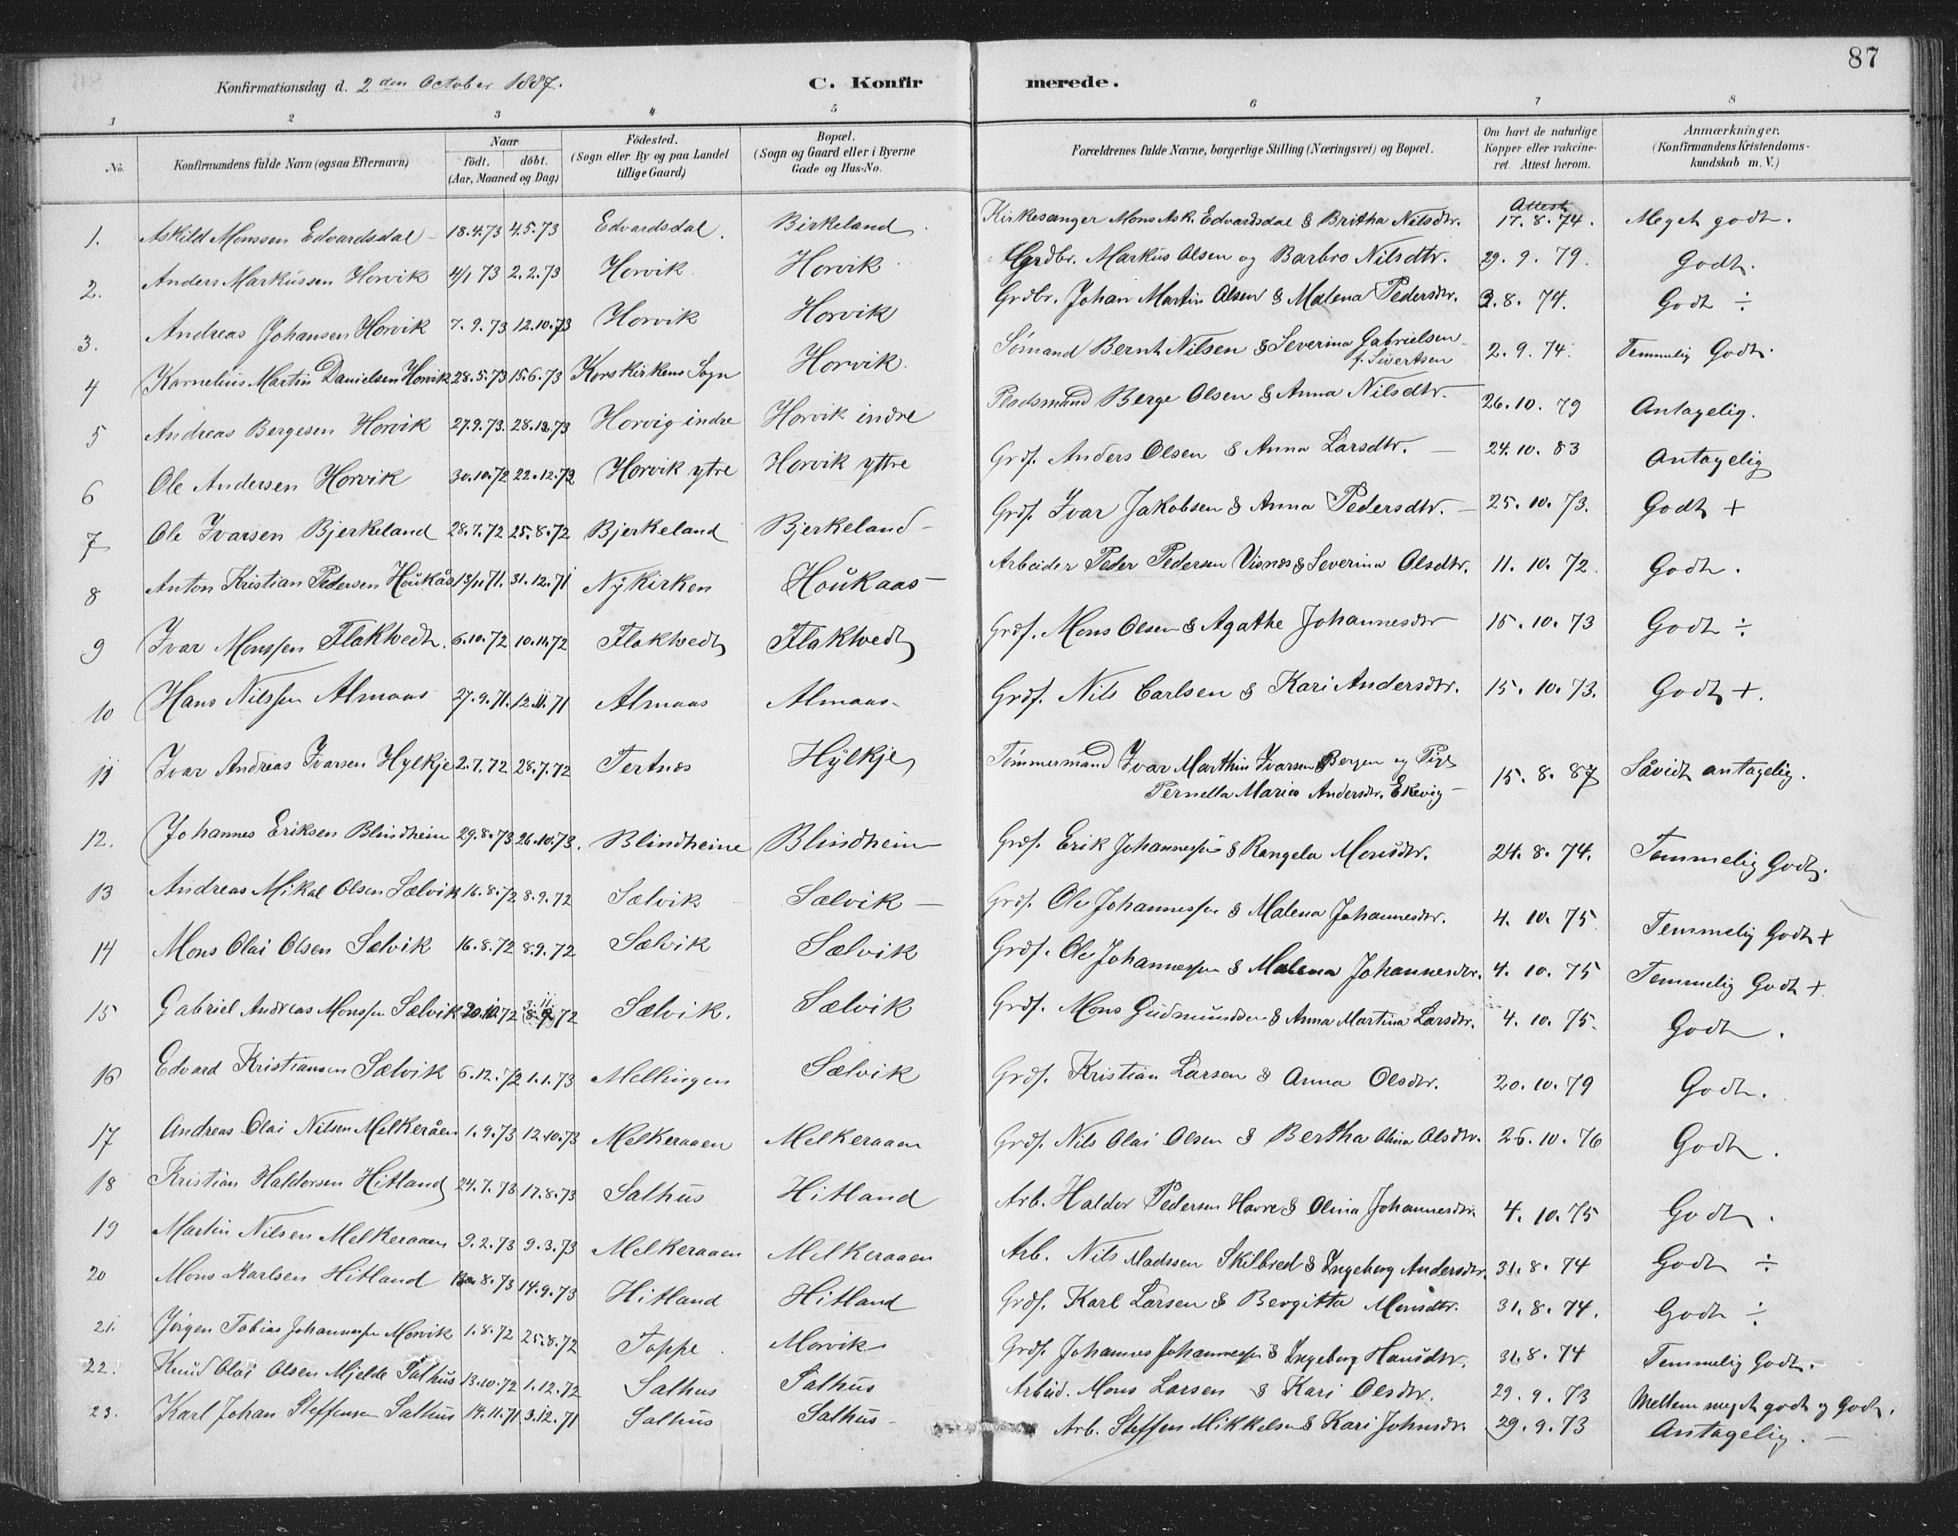 87
Konfirmationsdag d. 2den October 1887. C. Konfirmerede.
1 2 3 4 5 6 7 8
No. Konfirmandens fulde Navn (ogsaa Efternavn) Naar født. døbt. (Aar, Maaned og Dag) Fødested. (Sogn eller By og paa Landet tillige Gaard) Bopæl. (Sogn og Gaard eller i Byerne Gade og Hus-No. Forældrenes fulde Navne, borgerlige Stilling (Næringsvei) og Bopæl. Om havt de naturlige Kopper eller vakcineret. Attest herom. Anmærkninger. (Konfirmandens Kristendomskundskab m. V.)
1. Askild Monssen Edvardsdal 18.4.73 4.5.73 Edvardsdal. Birkeland. Kirkesanger Mons Ask. Edvardsdal & Britha Nilsdtr. Attest 17.8.74. Meget godt.
2. Anders Markussen Horvik 4/1 73 2.2.73 Horvik Horvik Grdbr. Markus Olsen og Barbro Nilsdtr. 29.9.79. Godt.
3. Andreas Johansen Horvik 7.9.73 12.10.73 Horvik Horvik Grdbr. Johan Martin Olsen & Malena Pedersdtr. 2.8.74. Godt ÷
4 Karnelius Martin Danielsen Horvik 28.5.73 15.6.73 Korskirkens Sogn Horvik. Sømand Bernt Nilsen & Severina Gabrielsen f. Sivertsen 2.9.74. Temmelig Godt.
5 Andreas Bergesen Horvik 27.9.73. 28.12.73 Horvig indre Horvik indre Pladsmand Berge Olsen & Anna Nilsdtr. 26.10.79 Antagelig.
6 Ole Andersen Horvik 30.10.72 22.12.72 Horvik ytre Horvik yttre Grdf. Anders Olsen & Anna Larsdtr. 24.10.83 Antagelig
7 Ole Ivarsen Bjerkeland 28.7.72 25.8.72 Bjerkeland Bjerkeland Grdf. Ivar Jakobsen & Anna Pedersdtr. 25.10.73. Godt +
8 Anton Kristian Pedersen Houkås 13/11 71. 31.12.71 Nykirken Houkaas Arbeider Peder Pedersen Visnes & Severina Olsdtr. 11.10.72. Godt.
9 Ivar Monssen Flaktvedt. 6.10.72 10.11.72 Flaktvedt Flaktvedt Grdf. Mons Olsen & Agathe Johannesdtr 15.10.73 Godt ÷
10 Hans Nilssen Almaas 27.9.71. 12.11.71 Almaas Almaas Grdf. Nils Carlsen & Kari Andersdtr. 15.10.73. Godt +.
11 Ivar Andreas Ivarsen Hylkje 2.7.72 28.7.72 Tertnes Hylkje Tømmermand Ivar Marthin Ivarsen Bergen og Pige Pernella Marie Andersdtr. Ekevig 15.8.87 Såvidt antagelig.
12. Johannes Eriksen Blindheim 29.8.73 26.10.73. Blindheim Blindheim Grdf. Erik Johannessen & Rangela Monsdtr. 24.8.74. Temmelig Godt.
13 Andreas Mikal Olsen Sælvik 16.8.72 8.9.72 Sælvik Sælvik Grdf. Ole Johannessen & Malena Johannesdtr. 4.10.75 Temmelig Godt +
14 Mons Olai Olsen Sælvik 16.8.72 8.9.72 Sælvik Sælvik Grdf. Ole Johannessen & Malena Johannesdtr. 4.10.75 Temmelig Godt +
15 Gabriel Andreas Monssen Sælvik 20.10.72 Sælvik. Sælvik Grdf. Mons Gudmundsen & Anna Martina Larsdtr. 4.10.75. Godt.
16 Edvard Kristiansen Sælvik 6.12.72 1.1.73 Mellingen Sælvik Grdf. Kristian Larsen & Anna Olsdtr. 20.10.79 Godt.
17 Andreas Olai Nilsen Melkeråen 1.9.73 12.10.73 Melkeraaen Melkeraaen Grdf. Nils Olai Olsen & Bertha Olina Olsdtr. 26.10.76 Godt.
18 Kristian Haldorsen Hitland 24.7.73 17.8.73 Salhus Hitland Arb. Haldor Pedersen Havre & Olina Johannesdtr. 4.10.75 Godt.
19 Martin Nilsen Melkeraaen 9.2.73 9.3.73 Melkeraaen Melkeraaen Arb. Nils Madssen Skilbred & Ingeborg Andersdtr. 31.8.74 Godt ÷
20 Mons Karlsen Hitland 8.73 14.9.73 Hitland Hitland Grdf. Karl Larsen & Bergitta Monsdtr. 31.8.74. Godt ÷
21. Jørgen Tobias Johannessen Morvik 1.8.72 25.8.72 Toppe. Morvik Grdf. Johannes Johannessen & Ingeborg Hansdtr. 31.8.74 Temmelig Godt.
22. Knud Olai Olsen Mjelde Salhus 13.10.72 1.12.72 Salhus Salhus Arbeid. Mons Larsen & Kari Olsdtr. 29.9.73 Mellem meget godt og Godt.
23. Karl Johan Steffensen Salhus 14.11.71 3.12.71 Salhus Salhus Arb. Steffen Mikkelsen & Kari Johnsdtr. 29.9.73 Antagelig.